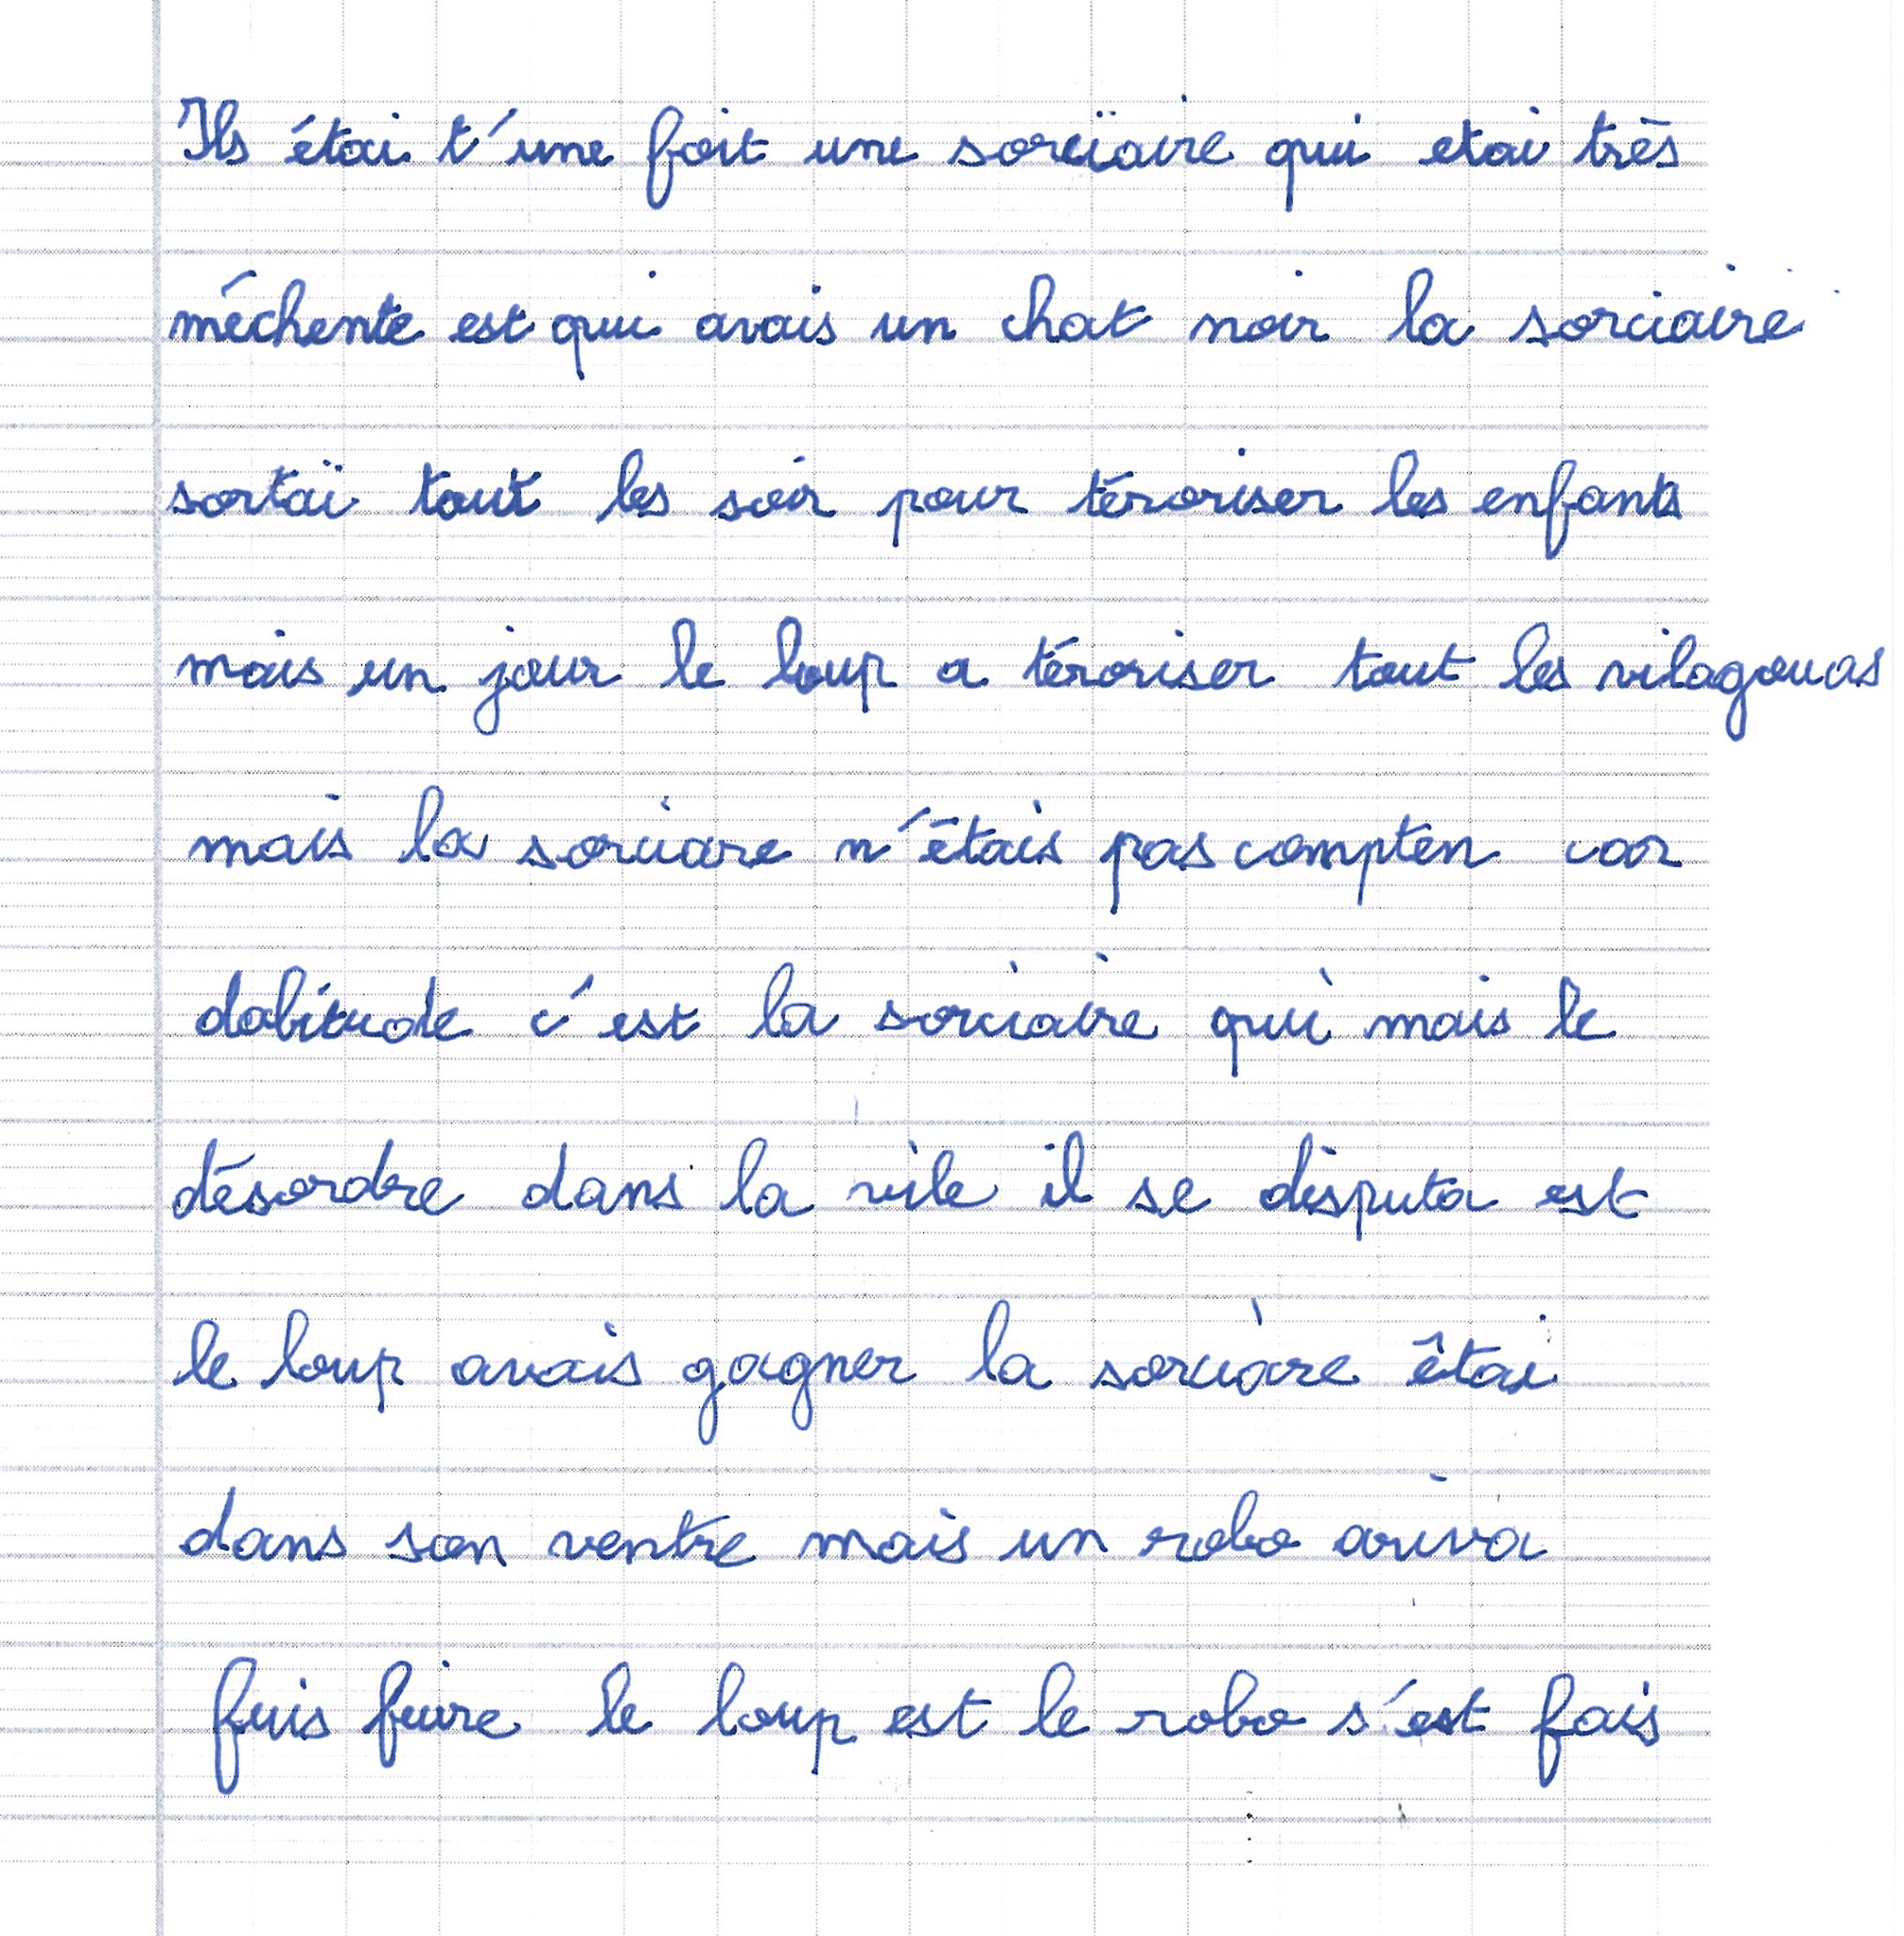 Ils étai t'une foit une sorciaire qui etai très
méchente est qui avais un chat noir la sorciaire
sortai tout les soir pour téroriser les enfants
mais un jour le loup a téroriser tout les vilagouas
mais la sorciare n'étais pas compten car
dabitude c'est la sorciaire qui mais le
désordre dans la vile il se disputa est
le loup avais gagner la sorciare étai
dans son ventre mais un robo ariva
fuis fuire le loup est le robo s'est fais